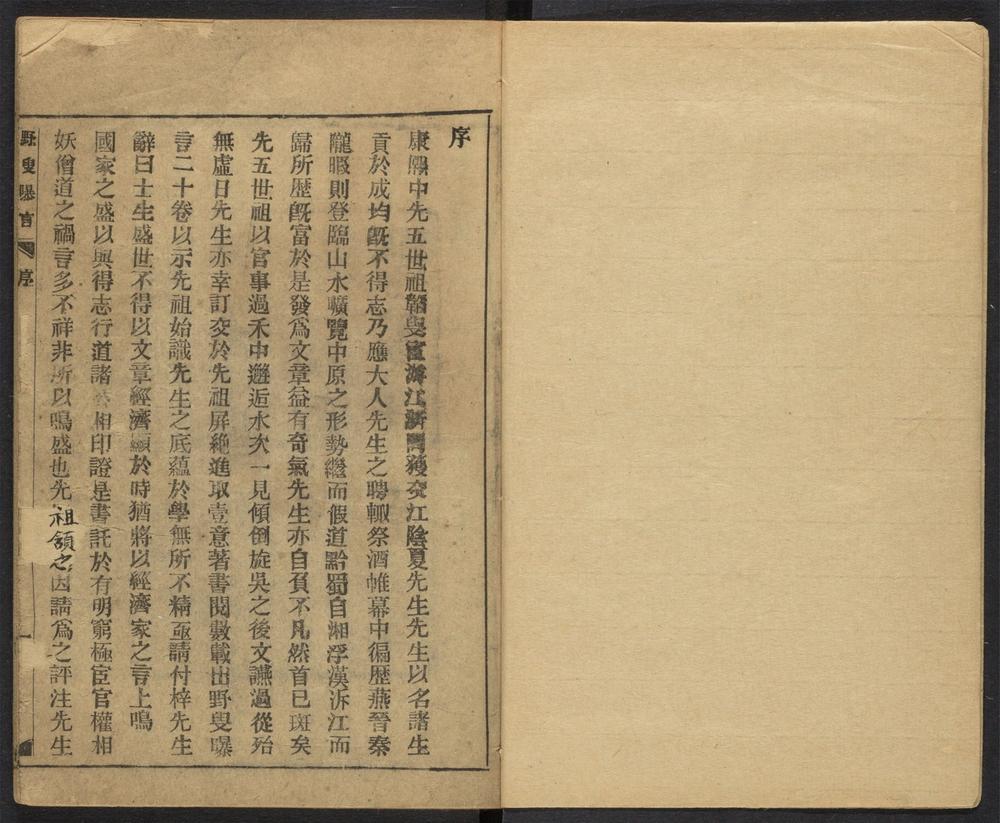 序
康熙中先五世祖韜叟宦游江浙間獲交江陰夏先生先生以名諸生
貢於成均旣不得志乃應大人先生之聘輒祭酒帷幕中徧歷燕晉秦
隴暇則登臨山水曠覽中原之形勢繼而假道黔蜀自湘浮漢泝江而
歸所歷旣富於是發爲文章益有奇氣先生亦自負不凡然首已斑矣
先五世祖以官事過禾中邂逅水次一見傾倒旋吳之後文讌過從殆
無虛日先生亦幸訂交於先祖屏絶進取壹意著書閱數載出野叟曝
言二十卷以示先祖始識先生之底蘊於學無所不精亟請付梓先生
辭曰士生盛世不得以文章經濟顯於時猶將以經濟家之言上鳴
國家之盛以與得志行道諸 相印證是書託於有明窮極宦官權相
妖僧道之禍言多不祥非所以鳴盛也先祖頷之因請爲之評注先生
野叟曝言 序